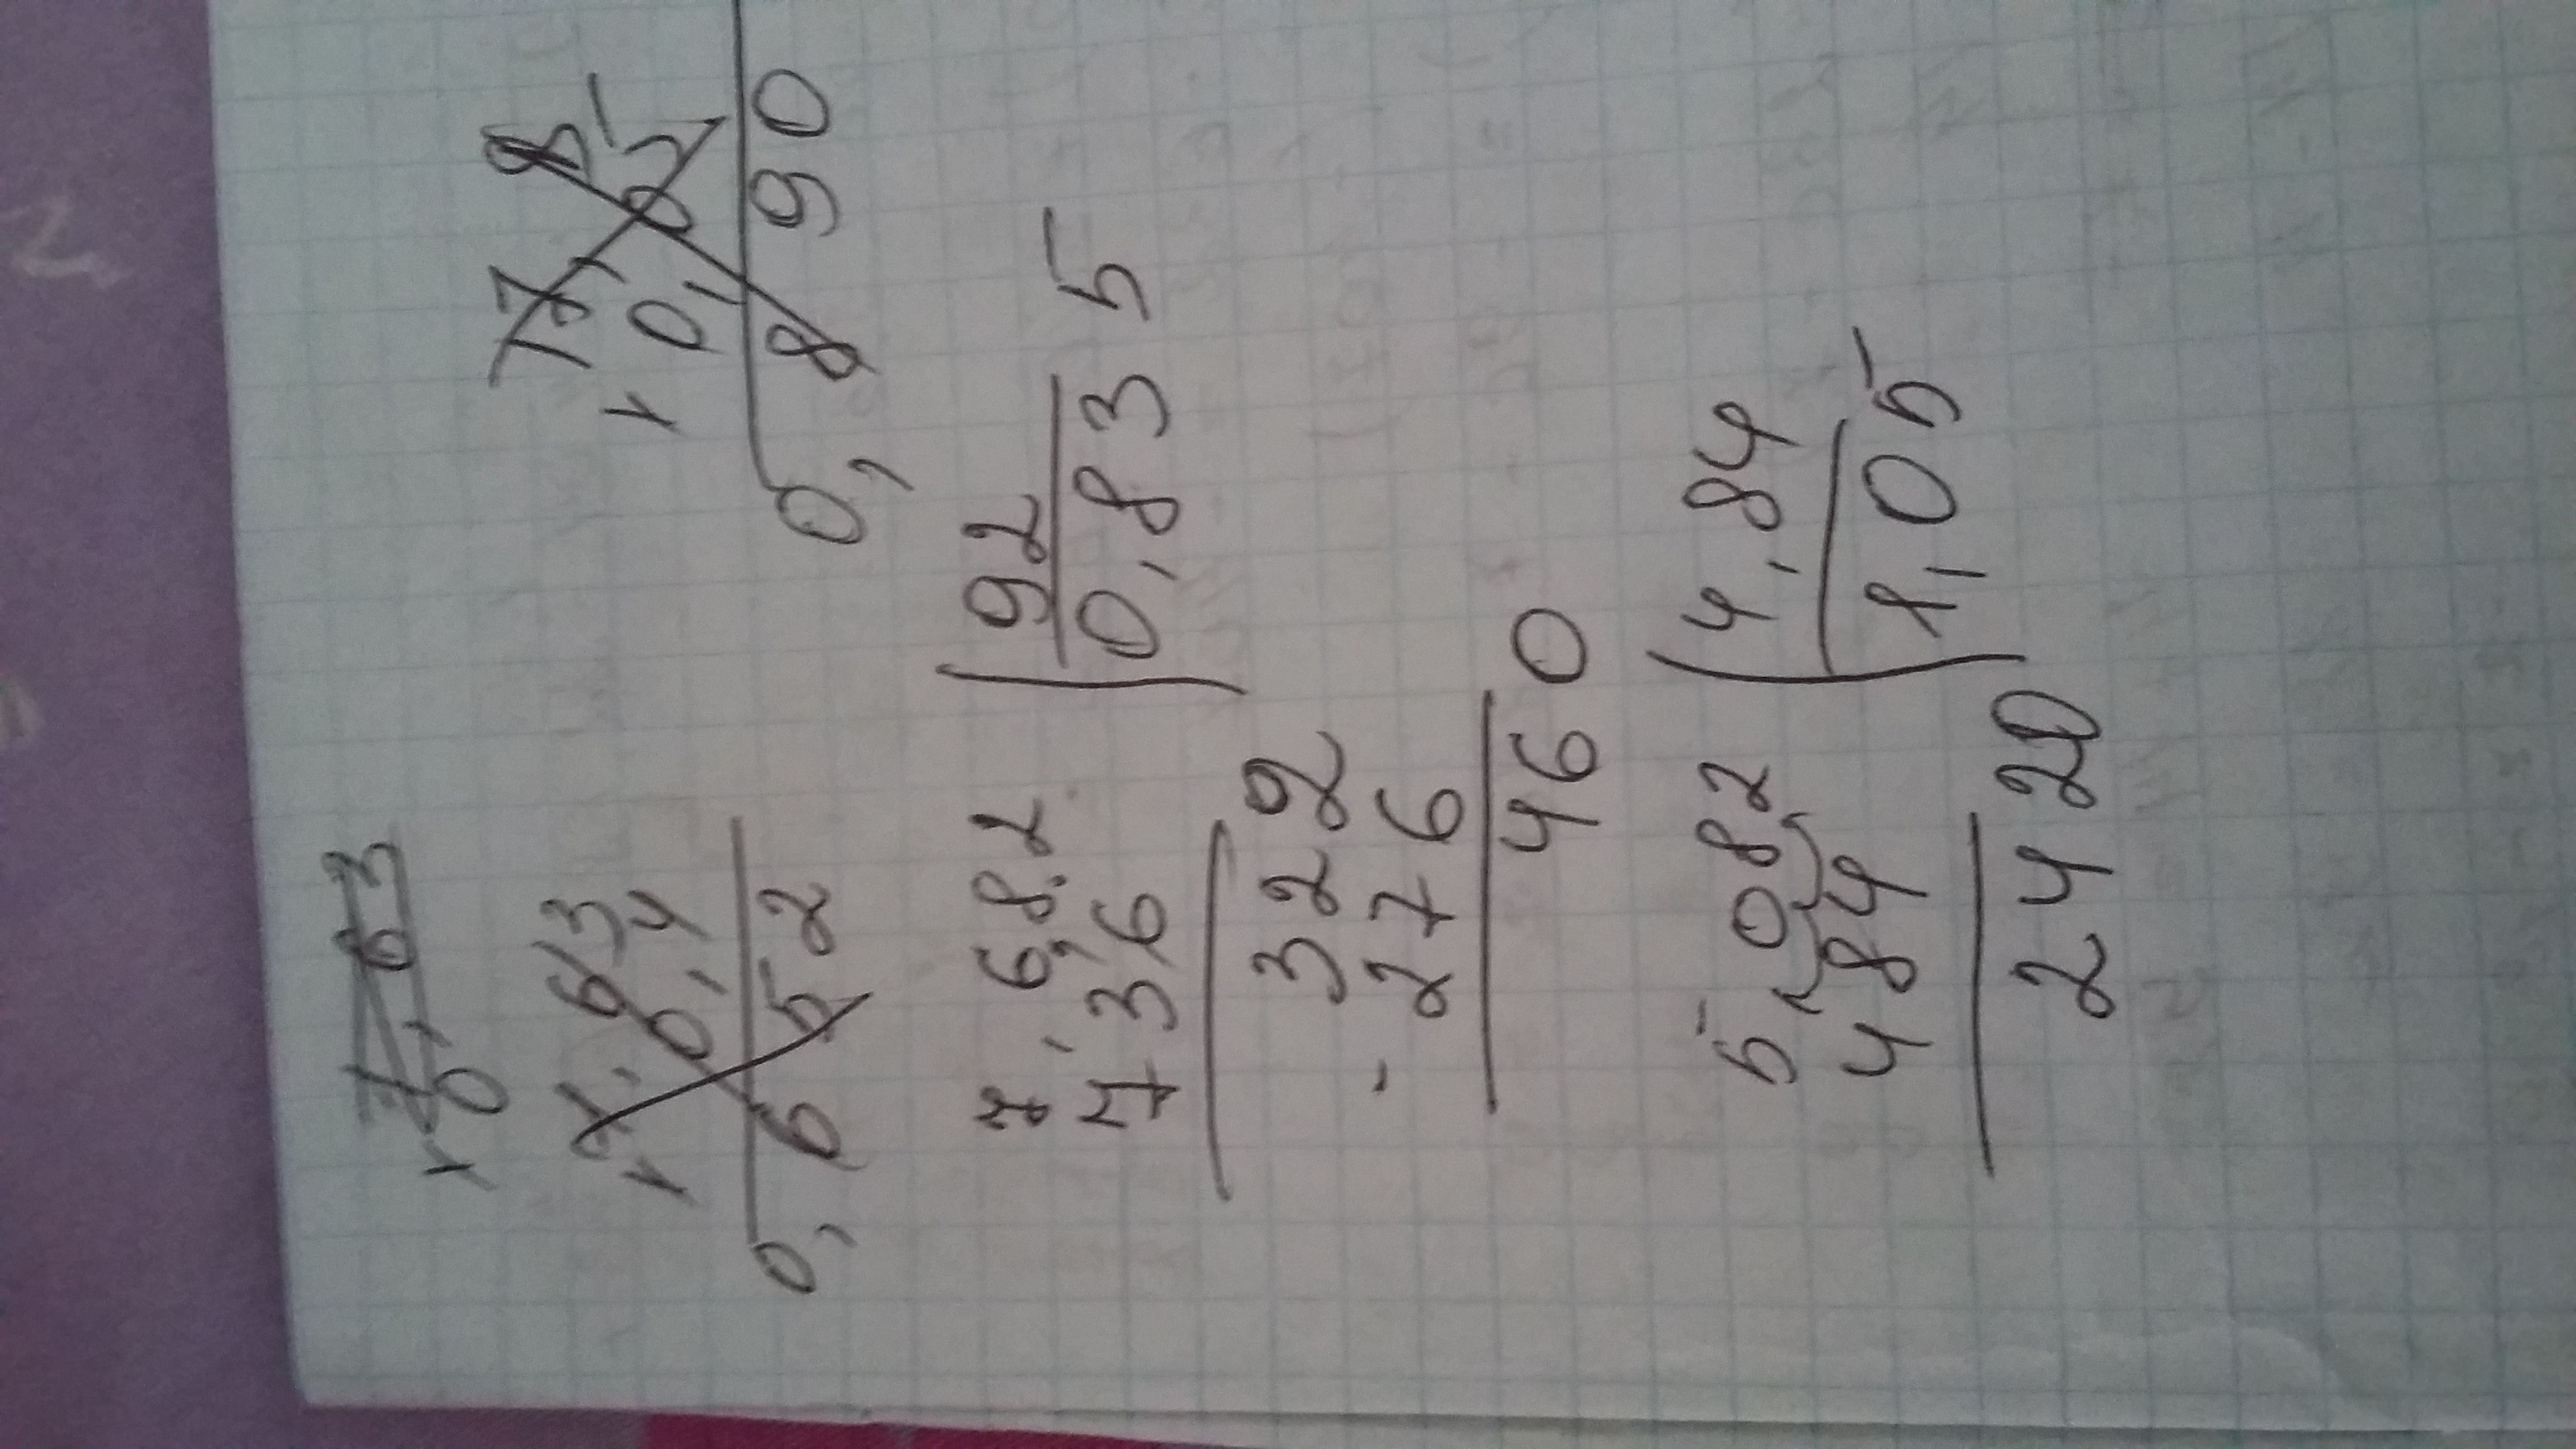 1,63
x 0,
1,63
x 0,4
0,652
17,8
x 0,05
0,890
7,682 92
7 36 0,835
322
- 276
460
5,082 4,84
4 84 1,05
2420